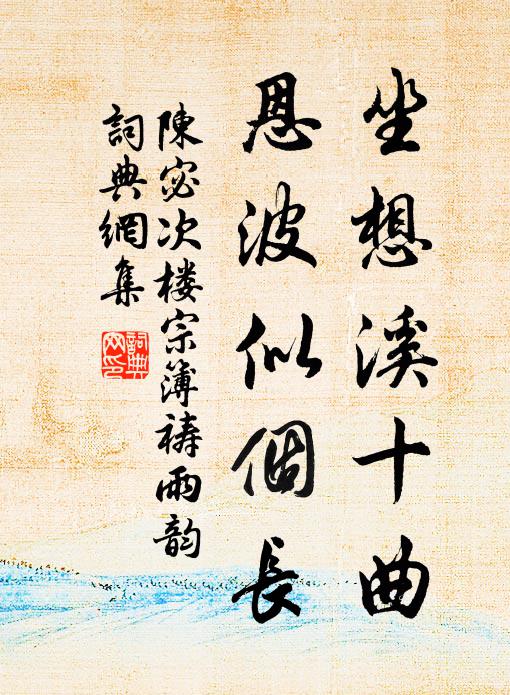 坐想溪十曲
恩波似個長
陳宓次楼宗簿禱雨韵
詞典網集
詞典网印